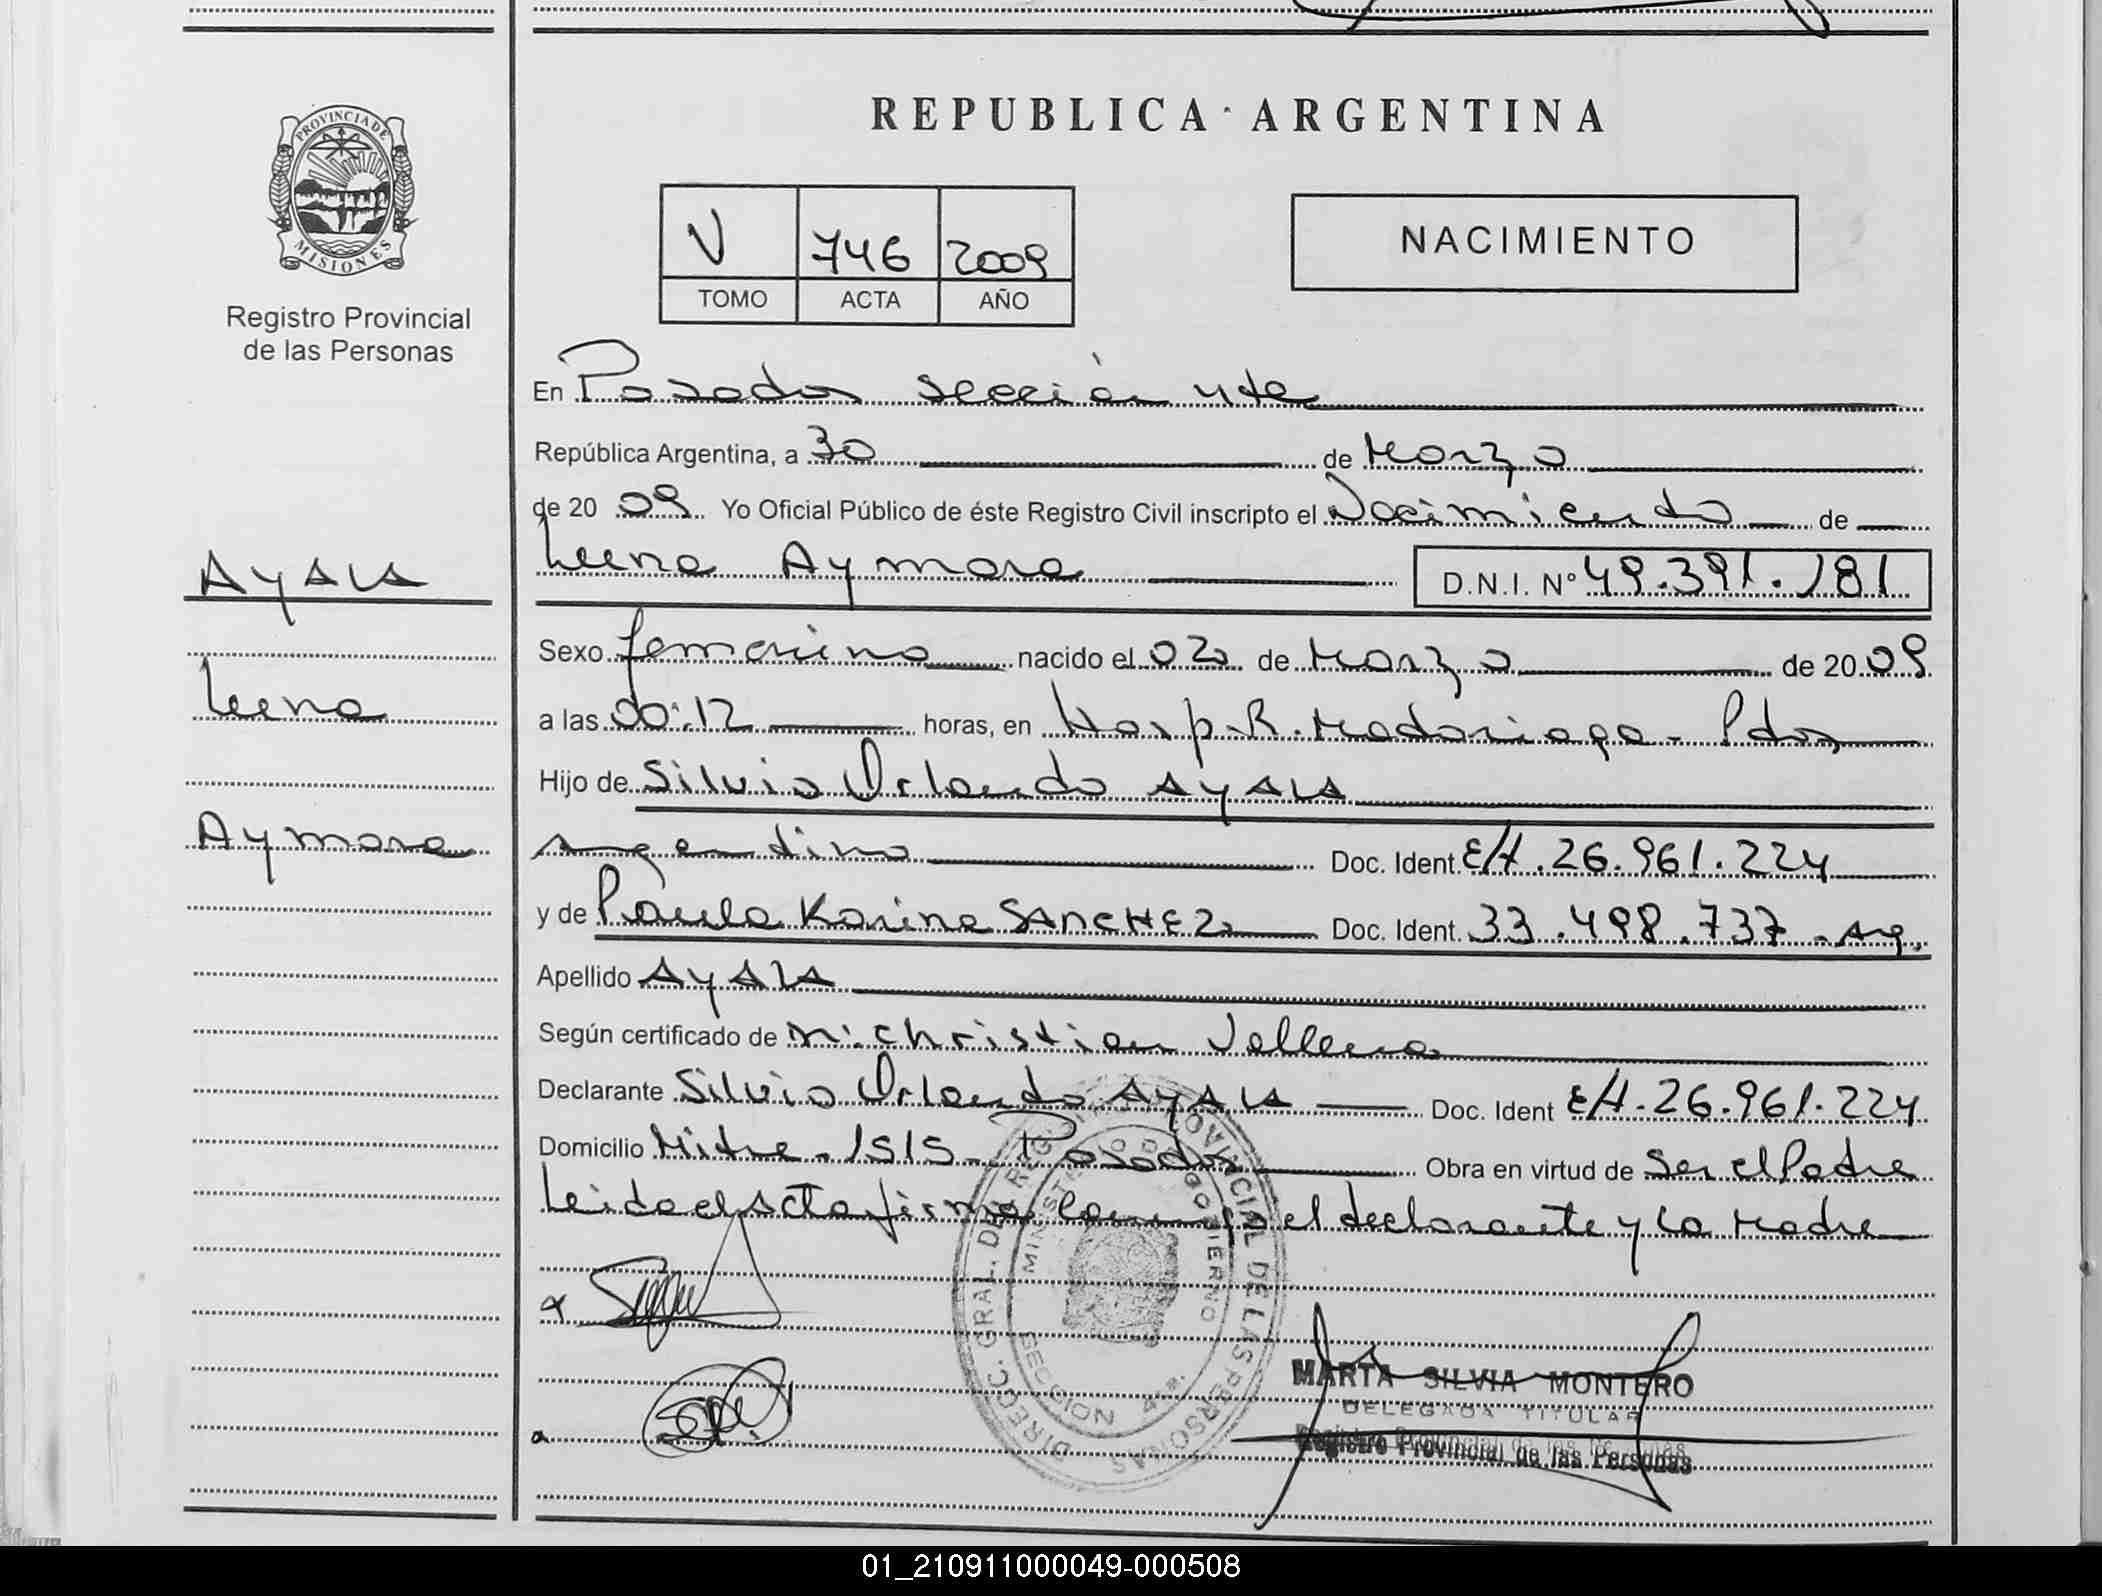 PROVINCIA DE
MISIONES
Registro Provincial
de las Personas
REPUBLICA ARGENTINA
V 746 2009
TOMO ACTA AÑO
NACIMIENTO
En Posadas sección 4ta
República Argentina, a 30 de Marzo
de 2009 Yo Oficial Público de éste Registro Civil inscripto el Nacimiento de
Aymara D.N.I. Nº 49.391.181
AYALA
Sexo femenino nacido el 02 de Marzo de 2009
a las 00:12 horas, en Hosp. R. Madariaga - Pdas
Hijo de Silvio Orlando AYALA
Aymara
argentino Doc. Ident. 26.961.224
y de Paula Karina SANCHEZ Doc. Ident. 33.498.737 - arg.
Apellido AYALA
Según certificado de Christian
Declarante Silvio Orlando AYALA Doc. Ident 26.961.224
Domicilio Mitre - 1515 - Posadas Obra en virtud de Ser el Padre
Leida el Acta firma conmigo el declarante y la Madre
DIRECC. GRAL. DEL REG. PROVINCIAL DE LAS PERSONAS
MINISTERIO DE GOBIERNO
SECCION 4ta.
MARTA SILVIA MONTERO
DELEGADA TITULAR
Registro Provincial de las Personas
01_210911000049-000508